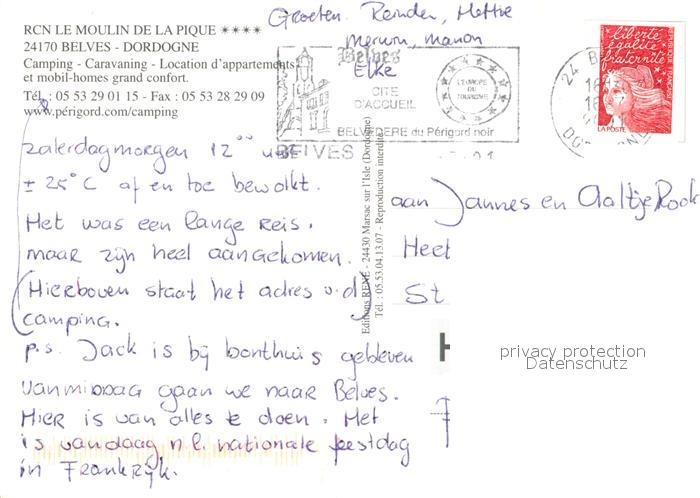 RCN LE MOULIN DE LA PIQUE ****
24170 BELVES - DORDOGNE
Camping - Caravaning - Location d'appartements
et mobil-homes grand confort.
Tél. : 05 53 29 01 15 - Fax : 05 53 28 29 09
www.périgord.com/camping
Groeten. Reinder, Hettie
Merwin, manon
Elke
Belves
CITE
D'ACCUEIL
L'EUROPE
DU
TOURISME
BELVEDERE du Périgord noir
BELVES
24 B
liberté
égalité
fraternité
LA POSTE
zaterdagmorgen 12⁰⁰ uur
± 25°C af en toe bewolkt.
Het was een lange reis.
maar zijn heel aangekomen.
(Hierboven staat het adres v.d.
camping.
p.s. Jack is bij bonthuis gebleven
vanmiddag gaan we naar Belves.
Hier is van alles te doen. Het
is vandaag n.l. nationale feestdag
in Frankrijk.
Editions RENE - 24430 Marsac sur l'Isle (Dordogne)
Tél. : 05.53.04.13.07 - Reproduction interdite
aan Jannes en Aaltje Rook
Heet
St
H
privacy protection
Datenschutz